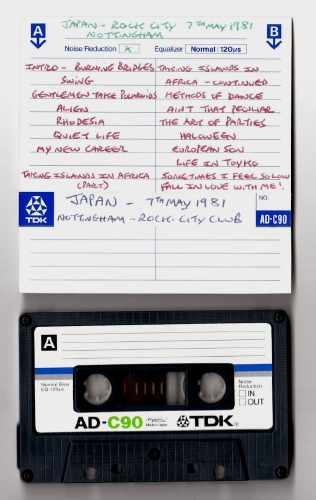 A
JAPAN - ROCK CITY 7TH MAY 1981
NOTTINGHAM
B
Noise Reduction x Equalizer Normal: 120μs
INTRO - BURNING BRIDGES
SWING
GENTLEMEN TAKE POLAROIDS
ALIEN
RHODESIA
QUIET LIFE
MY NEW CAREER
TAKING ISLANDS IN AFRICA
(PART)
TAKING ISLANDS IN
AFRICA - CONTINUED
METHODS OF DANCE
AIN'T THAT PECULIAR
THE ART OF PARTIES
HALOWEEN
EUROPEAN SON
LIFE IN TOYKO
SOMETIMES I FEEL SO LOW
FALL IN LOVE WITH ME!
TDK
JAPAN - 7TH MAY 1981
NOTTINGHAM - ROCK CITY CLUB
NO.
AD-C90
A
Normal Bias
EQ:120μs
Noise
Reduction
IN
OUT
AD-C90
Made in Japan
TDK